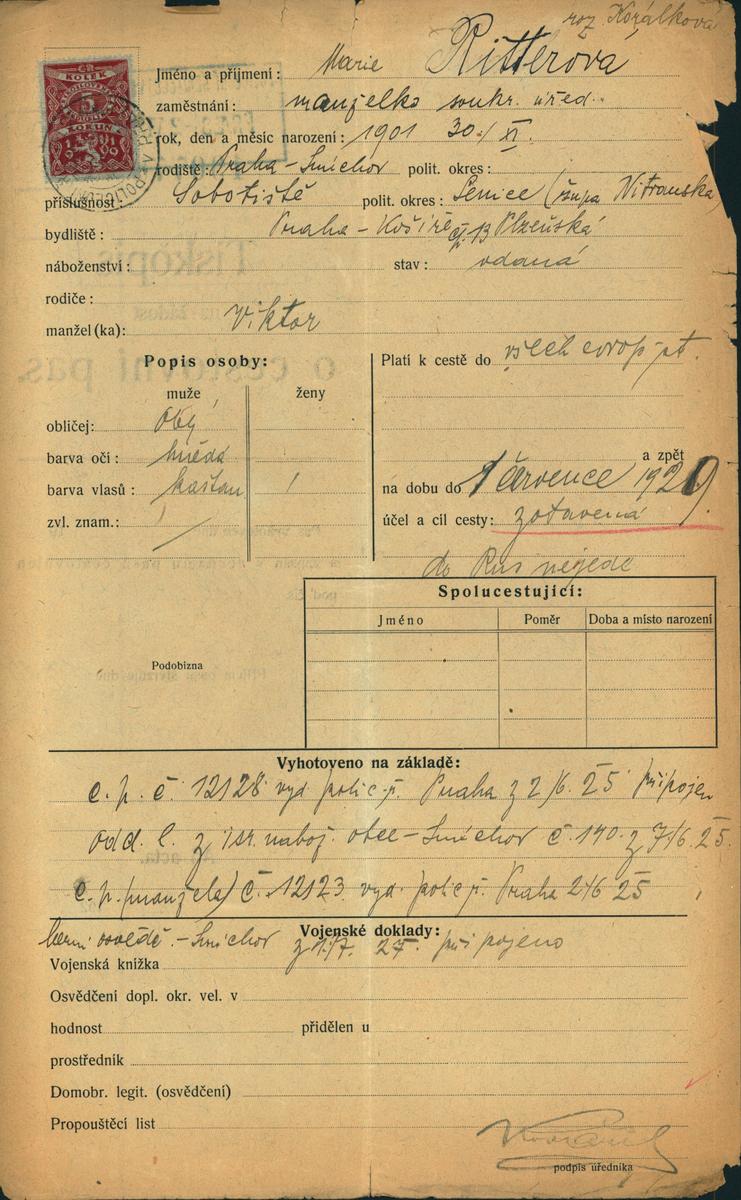 roz. Korálková
Jméno a příjmení: Marie Ritterova
zaměstnání: manželka soukr. úřed.
rok, den a měsíc narození: 1901 30./XI.
rodiště: Praha-Smíchov polit. okres:
příslušnost: Sobotiště polit. okres: Senice (župa Nitranska)
bydliště: Praha-Košíře čp. 13 Plzeňská
náboženství: stav: vdaná
rodiče:
manžel(ka): Viktor
Popis osoby:
muže ženy
obličej: obly
barva očí: hnědá
barva vlasů: kaštan
zvl. znam.:
Platí k cestě do všech evrop. st.
a zpět
na dobu do 1 července 1929.
účel a cíl cesty: zotavená
do Rus nejede
Spolucestující:
Jméno Poměr Doba a místo narození
Podobizna
Vyhotoveno na základě:
c. p. č. 12128 vyd. polic. ř. Praha z 2/6. 25 připojen
odd. l. z isr. nabož. obce-Smíchov č. 140. z 7/6. 25.
c. p. (manžela) č. 12123 vyd. polic. ř. Praha 2/6 25
Vojenské doklady:
berní osvědč.-Smíchov z 1./7. 27. připojeno
Vojenská knížka
Osvědčení dopl. okr. vel. v
hodnost přidělen u
prostředník
Domobr. legit. (osvědčení)
Propouštěcí list
podpis úředníka
KOLEK
5
KORUN